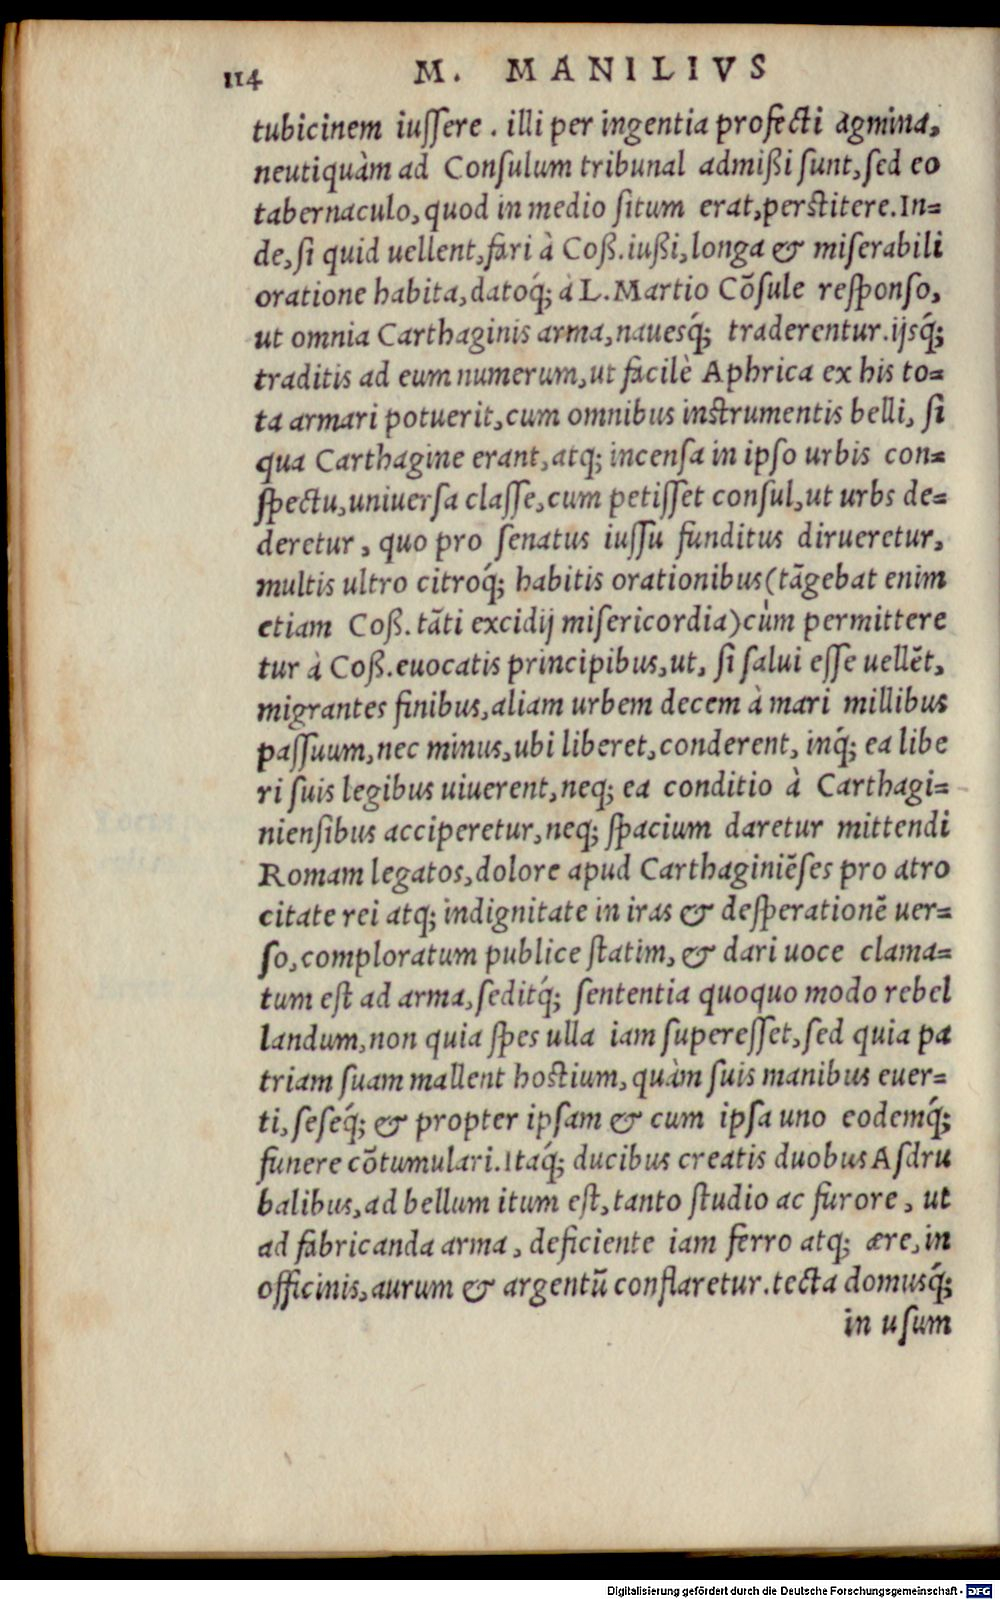 114 M. MANILIVS
tubicinem iussere. illi per ingentia profecti agmina,
neutiquàm ad Consulum tribunal admißi sunt, sed eo
tabernaculo, quod in medio situm erat, perstitere. In=
de, si quid uellent, fari à Coß. iußi, longa & miserabili
oratione habita, datoq́; à L. Martio Cōsule responso,
ut omnia Carthaginis arma, nauesq́; traderentur. ijsq́;
traditis ad eum numerum, ut facilè Aphrica ex his to=
ta armari potuerit, cum omnibus instrumentis belli, si
qua Carthagine erant, atq; incensa in ipso urbis con=
spectu, uniuersa classe, cum petisset consul, ut urbs de=
deretur, quo pro senatus iussu funditus dirueretur,
multis ultro citroq́; habitis orationibus (tāgebat enim
etiam Coß. tāti excidij misericordia) cùm permittere
tur à Coß. euocatis principibus, ut, si salui esse uellēt,
migrantes finibus, aliam urbem decem à mari millibus
passuum, nec minus, ubi liberet, conderent, inq́; ea libe
ri suis legibus uiuerent, neq; ea conditio à Carthagi=
niensibus acciperetur, neq; spacium daretur mittendi
Romam legatos, dolore apud Carthaginiēses pro atro
citate rei atq; indignitate in iras & desperationē uer=
so, comploratum publice statim, & dari uoce clama=
tum est ad arma, seditq́; sententia quoquo modo rebel
landum, non quia spes ulla iam superesset, sed quia pa
triam suam mallent hostium, quàm suis manibus euer=
ti, seseq́; & propter ipsam & cum ipsa uno eodemq́;
funere cōtumulari. Itaq́; ducibus creatis duobus Asdru
balibus, ad bellum itum est, tanto studio ac furore, ut
ad fabricanda arma, deficiente iam ferro atq; ære, in
officinis, aurum & argentū conflaretur. tecta domusq́;
in usum
Digitalisierung gefördert durch die Deutsche Forschungsgemeinschaft - DFG